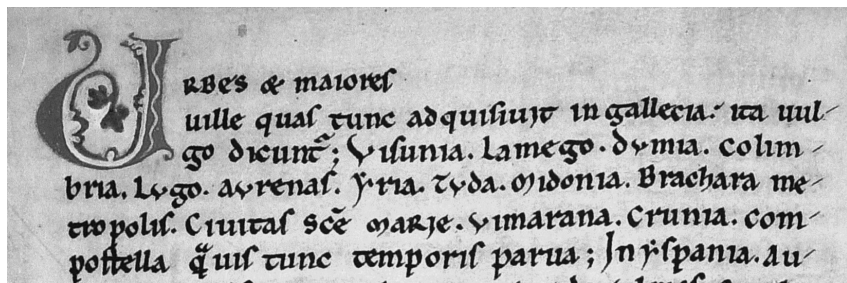 Urbes & maiores
uille quas tunc adquisiuit in gallecia. ita uul-
go dicunt̃; Visunia. Lamego. dumia. Colim-
bria. Lugo. aurenas. Yria. Tyda. Midonia. Brachara me-
tropolis. Ciuitas sc̄e MARIE. vimarana. Crunia. Com-
postella q̃uis tunc temporis parua; In yspania. Au-